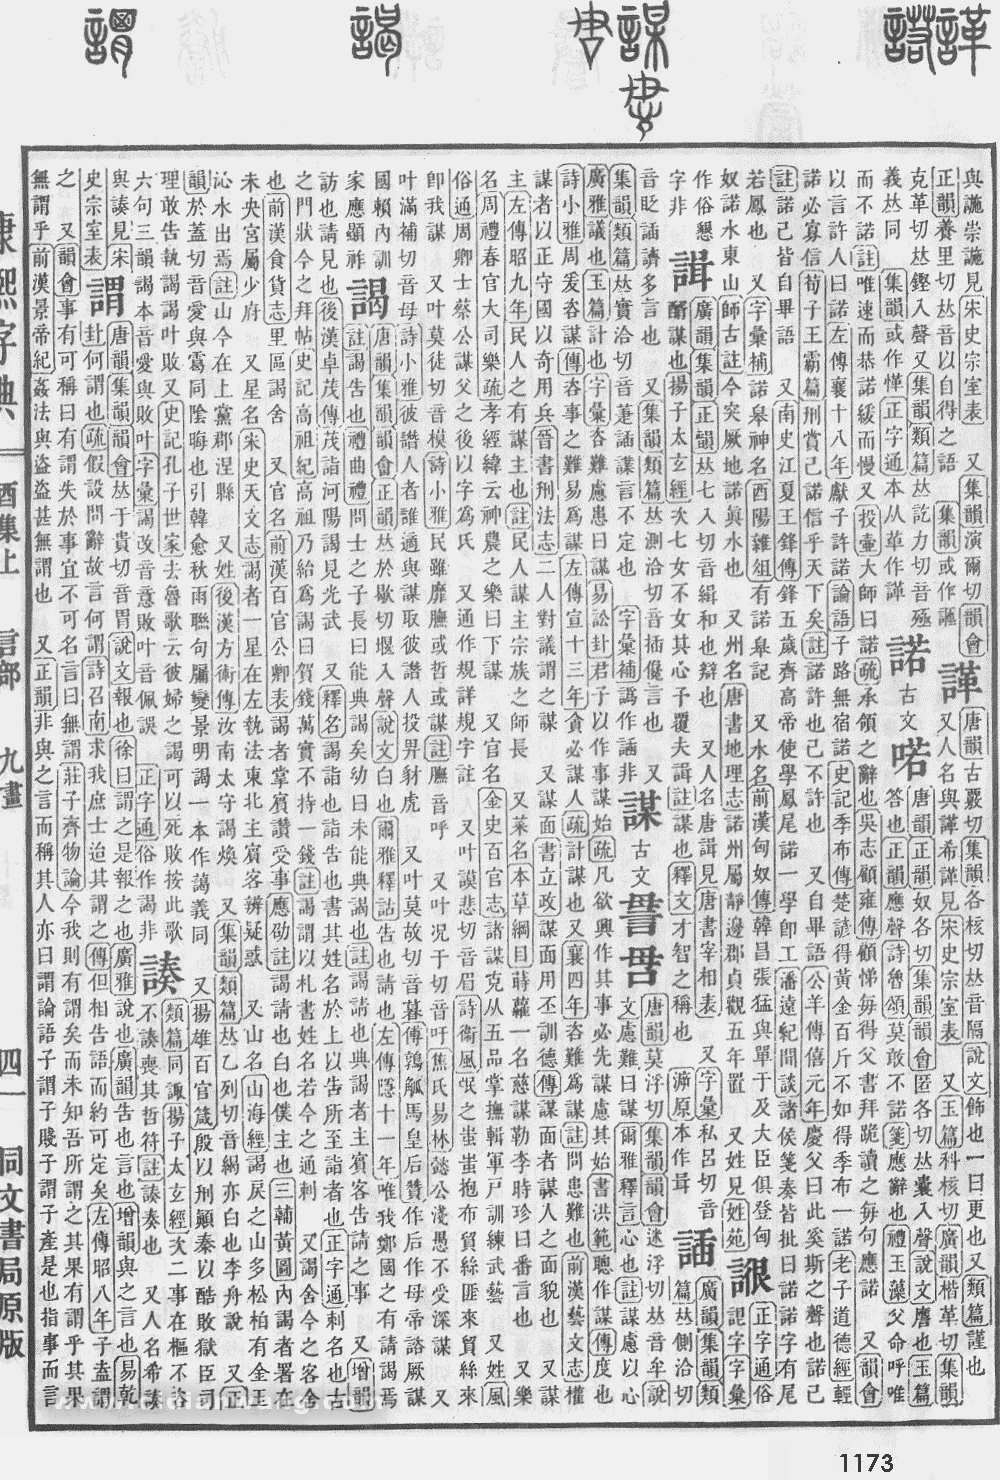 諽 諾
謀
謁
謂
與譺崇譺見宋史宗室表 又集韻演爾切韻會
正韻養里切𠀤音以自得之語 集韻或作讉
諽
唐韻古覈切集韻各核切𠀤音隔說文飾也一曰更也又類篇謹也
又人名與諽希諽見宋史宗室表 又玉篇科核切廣韻楷革切集韻
克革切𠀤鏗入聲又集韻類篇𠀤訖力切音殛
義𠀤同 集韻或作愅正字通本从革作諽
諾
古文
喏
唐韻正韻奴各切集韻韻會匿各切𠀤囊入聲說文譍也玉篇
答也正韻應聲詩魯頌莫敢不諾箋應辭也禮玉藻父命呼唯
而不諾註唯速而恭諾緩而慢又投壷大師曰諾疏承領之辭也吳志顧雍傳顧悌每得父書拜跪讀之每句應諾 又韻會
以言許人曰諾左傳襄十八年獻子許諾論語子路無宿諾史記季布傳楚諺得黃金百斤不如得季布一諾老子道德經輕
諾必寡信荀子王霸篇刑賞已諾信乎天下矣註諾許也已不許也 又自畢語公羊傳僖元年慶父曰此奚斯之聲也諾已
註諾已皆自畢語 又南史江夏王鋒傳鋒五歲齊高帝使學鳳尾諾一學卽工潘遠紀聞談諸侯箋奏皆批曰諾諾字有尾
若鳳也 又字彙補諾皋神名酉陽雜俎有諾皋記 又水名前漢匈奴傳韓昌張猛與單于及大臣俱登匈
奴諾水東山師古註今突厥地諾眞水也 又州名唐書地理志諾州屬靜邊郡貞觀五年置 又姓見姓苑
䛳
正字通俗
諰字字彙
作俗懇
字非
諿
廣韻集韻正韻𠀤七入切音緝和也辯也 又人名唐諿見唐書宰相表 又字彙私呂切音
醑謀也揚子太玄經次七女不女其心予覆夫諿註謀也釋文才智之稱也 㴑原本作咠
誧
廣韻集韻類
篇𠀤側洽切
音眨誧譇多言也 又集韻類篇𠀤測洽切音插儳言也 又
集韻類篇𠀤實洽切音萐誧䜓言不定也 字彙補譌作䛡非
謀
古文
唐韻莫浮切集韻韻會迷浮切𠀤音牟說
文慮難曰謀爾雅釋言心也註謀慮以心
廣雅議也玉篇計也字彙咨難慮患曰謀易訟卦君子以作事謀始疏凡欲興作其事必先謀慮其始書洪範聰作謀傳度也
詩小雅周爰咨謀傳咨事之難易爲謀左傳宣十三年貪必謀人疏計謀也又襄四年咨難爲謀註問患難也前漢藝文志權
謀者以正守國以奇用兵晉書刑法志二人對議謂之謀 又謀面書立政謀面用丕訓德傳謀面者謀人之面貌也 又謀
主左傳昭九年民人之有謀主也註民人謀主宗族之師長 又菜名本草綱目蒔蘿一名慈謀勒李時珍曰番言也 又樂
名周禮春官大司樂疏孝經緯云神農之樂曰下謀 又官名金史百官志諸謀克从五品掌撫輯軍戸訓練武藝 又姓風
俗通周卿士蔡公謀父之後以字爲氏 又通作規詳規字註 又叶謨悲切音眉詩衞風氓之蚩蚩抱布貿絲匪來貿絲來
卽我謀 又叶莫徒切音模詩小雅民雖靡膴或哲或謀註膴音呼 又叶况于切音吁焦氏易林懿公淺愚不受深謀 又
叶滿補切音母詩小雅彼譖人者誰適與謀取彼譖人投畀豺虎 又叶莫故切音暮傅鶉觚馬皇后贊作后作母帝諮厥謀
國賴內訓
家應顯祚
謁
唐韻集韻韻會正韻𠀤於歇切堰入聲說文白也爾雅釋詁告也請也左傳隱十一年唯我鄭國之有請謁焉
註謁告也禮曲禮問士之子長曰能典謁矣幼曰未能典謁也註謁請也典謁者主賓客告請之事 又增韻
訪也請見也後漢卓茂傳茂詣河陽謁見光武 又釋名謁詣也詣告也書其姓名於上以告所至詣者也正字通剌名也古
之門狀今之拜帖史記高祖紀高祖乃紿爲謁曰賀錢萬實不持一錢註謁謂以札書姓名若今之通刺 又謁舍今之客舍
也前漢食貨志里區謁舍 又官名前漢百官公卿表謁者掌賓讚受事應劭註謁請也白也僕主也三輔黃圖內謁者署在
未央宮屬少府 又星名宋史天文志謁者一星在左執法東北主賓客辨疑惑 又山名山海經謁戾之山多松柏有金玉
沁水出焉註山今在上黨郡涅縣 又姓後漢方術傳汝南太守謁煥 又集韻類篇𠀤乙列切音緆亦白也李舟說 又正
韻於蓋切音愛與靄同陰晦也引韓愈秋雨聯句屬變景明謁一本作藹義同 又揚雄百官箴殷以刑顚秦以酷敗獄臣司
理敢告執謁謁叶敗又史記孔子世家去魯歌云彼婦之謁可以死敗按此歌
六句三韻謁本音愛與敗叶字彙謁改音意敗叶音佩誤 正字通俗作謁非
諘
類篇同諏揚子太玄經次二事在樞不咨
不諘喪其哲符註諘奏也 又人名希諘
與諘見宋
史宗室表
謂
唐韻集韻韻會𠀤于貴切音胃說文報也徐曰謂之是報之也廣雅說也廣韻告也言也增韻與之言也易乾
卦何謂也疏假設問辭故言何謂詩召南求我庶士迨其謂之傳但相告語而約可定矣左傳昭八年子盍謂
之 又韻會事有可稱曰有謂失於事宜不可名言曰無謂莊子齊物論今我則有謂矣而未知吾所謂之其果有謂乎其果
無謂乎前漢景帝紀姦法與盜盜甚無謂也 又正韻非與之言而稱其人亦曰謂論語子謂子賤子謂子產是也指事而言
康熙字典 酉集上 言部 九畫 四 同文書局原版
1173